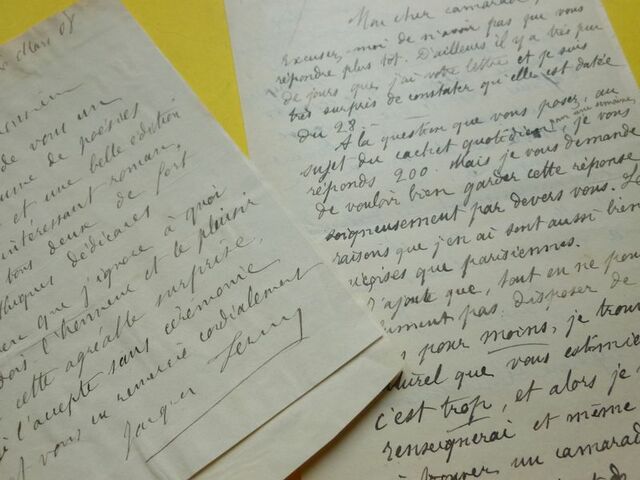 Mars 08
de vous un
de poésies
et une belle édition
intéressant roman,
tous deux de fort
dédicaces
que j'ignore à quoi
dois l'honneur et le plaisir
cette agréable surprise,
l'accepte sans cérémonie
et vous en remercie cordialement
Jacques
Mon cher camarade,
Excusez-moi de n'avoir pas que vous
répondre plus tôt. D'ailleurs il y a très peu
de jours que j'ai votre lettre et je suis
très surpris de constater qu'elle est datée
du 28.
A la question que vous posez, au
sujet du cachet quotidien, je vous
réponds 200. Mais je vous demande
de vouloir bien garder cette réponse
soigneusement par devers vous. Les
raisons que j'en ai sont aussi bien
niçoises que parisiennes.
J'ajoute que, tout en ne
pas disposer de
pour moins, je
que vous
c'est trop, et alors je
renseignerai et même
trouver un camarad